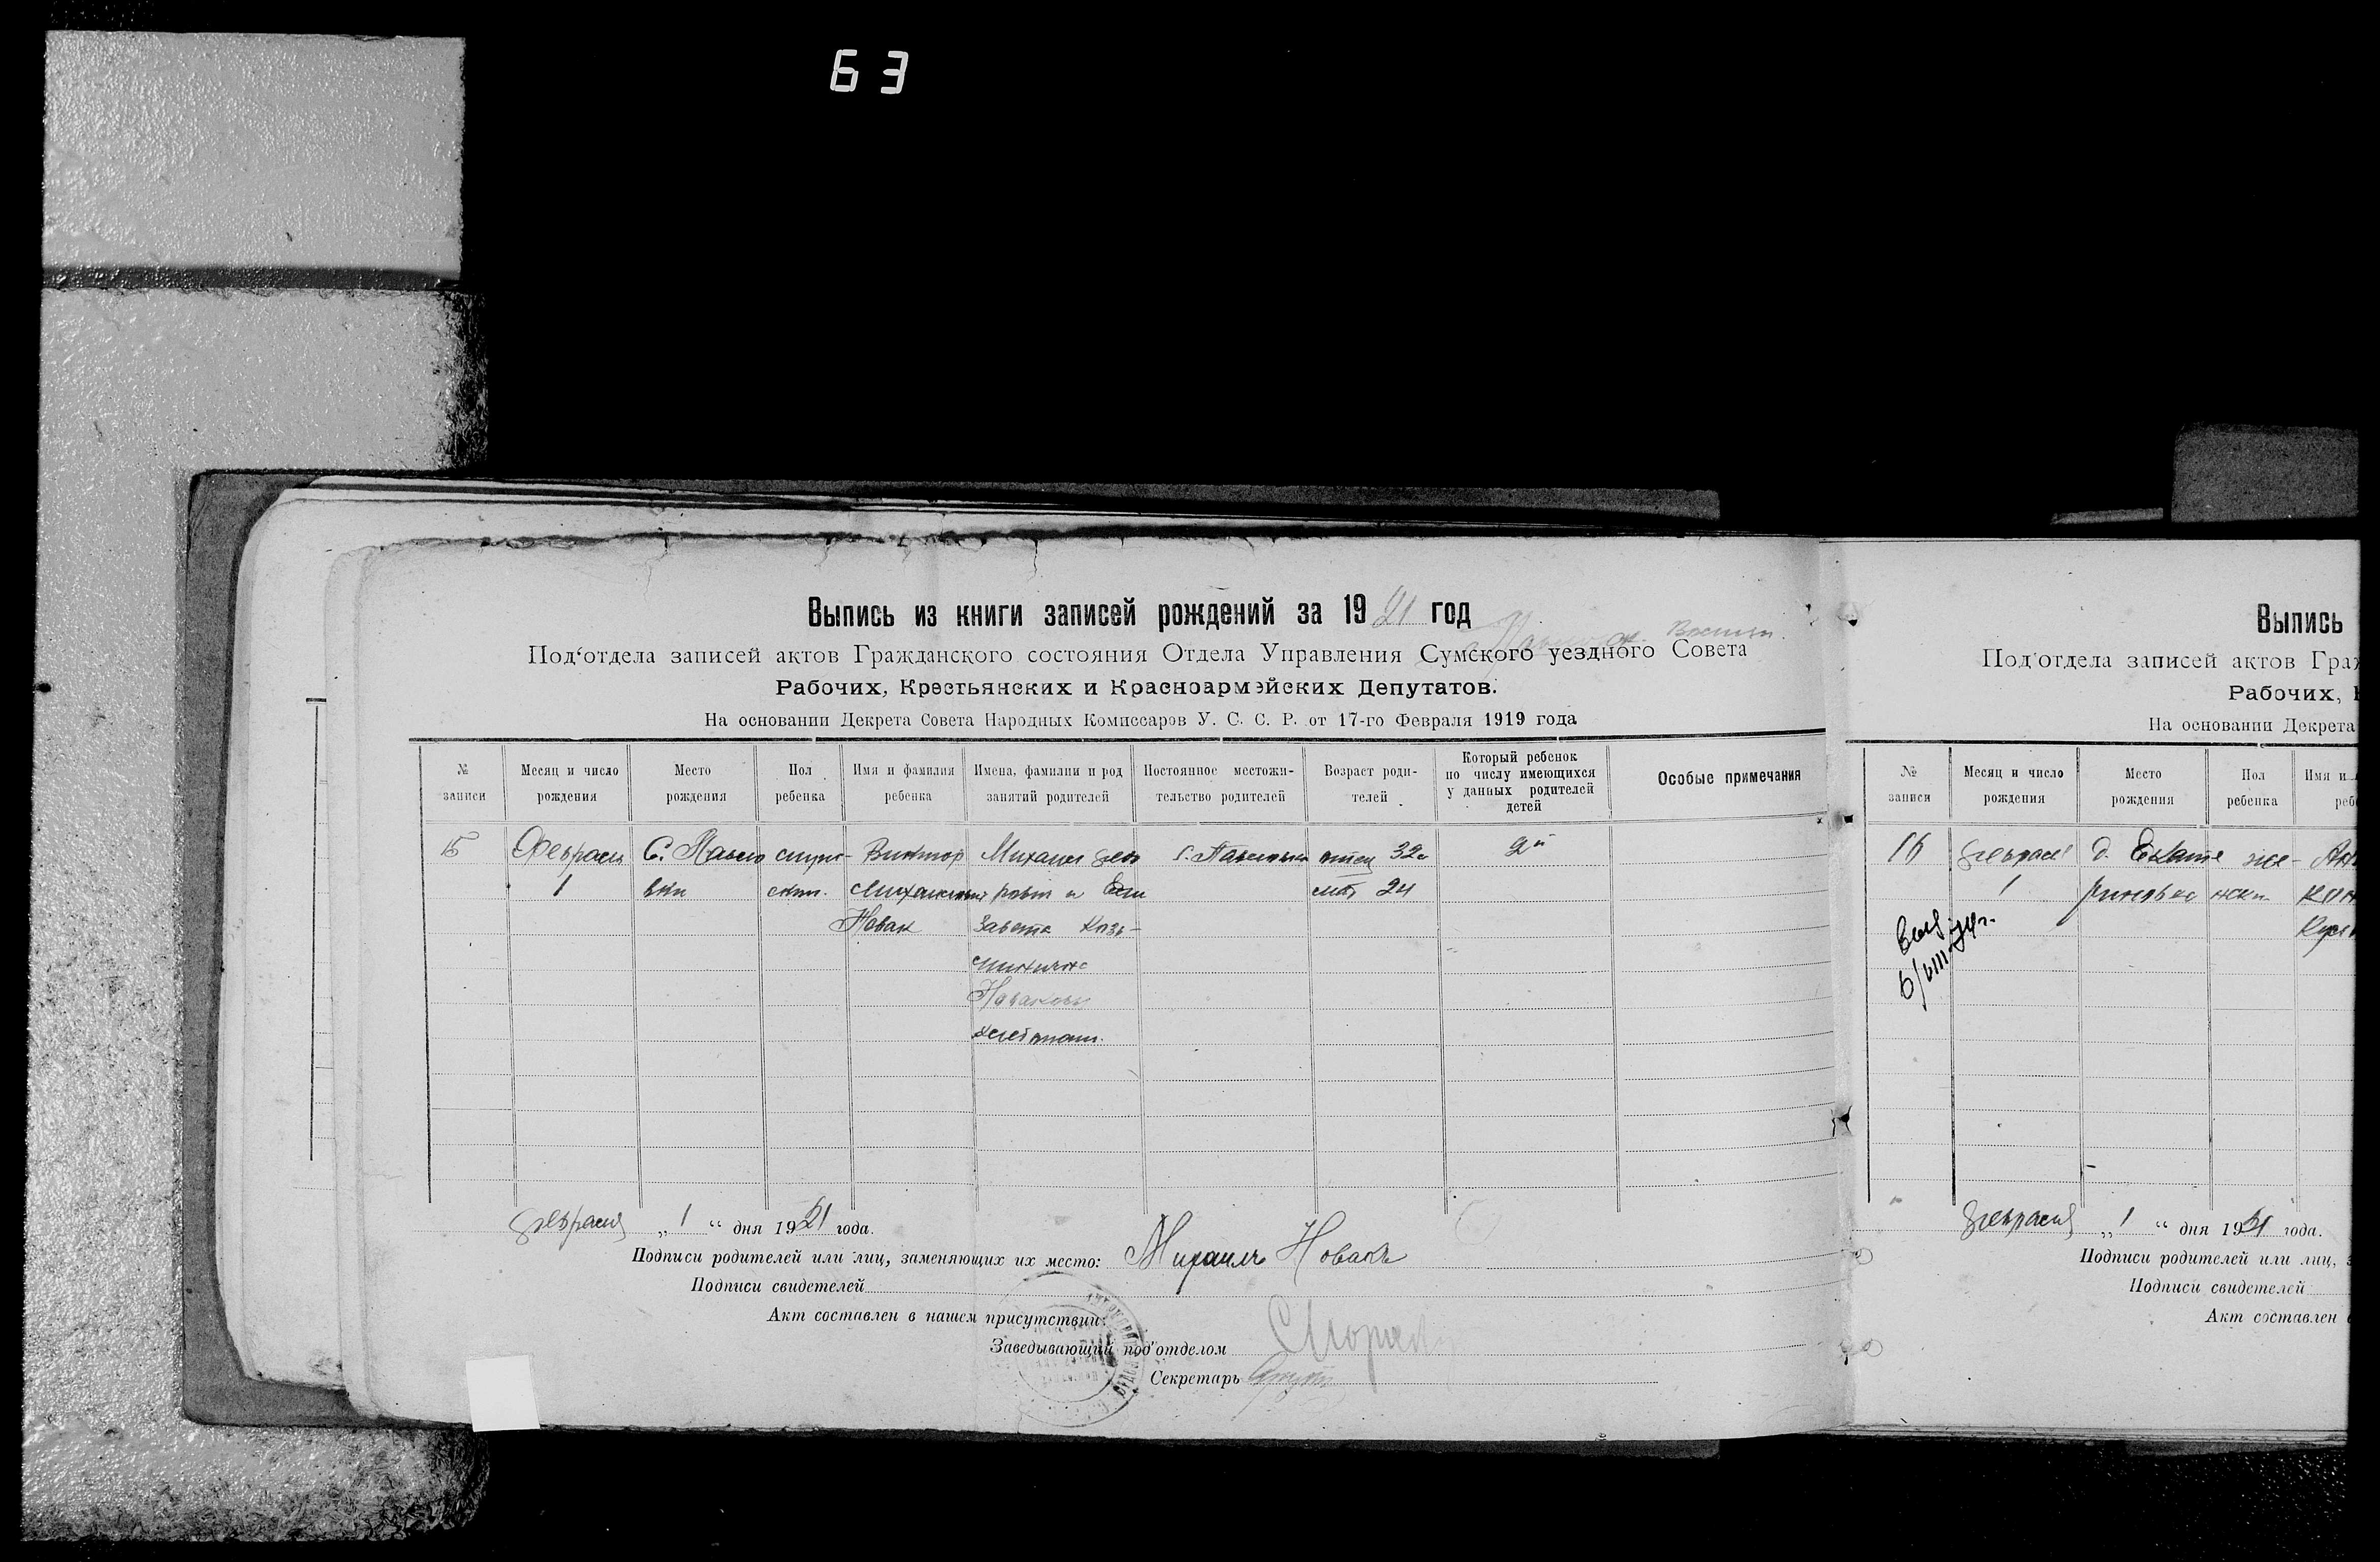 63
Выпись из книги записей рождений за 1921 год
Под‘отдела записей актов Гражданского состояния Отдела Управления Сумского уездного Совета
Рабочих, Крестьянских и Красноармэйских Депутатов.
На основании Декрета Совета Народных Комиссаров У. С. С. Р. от 17-го Февраля 1919 года
№ записи
Месяц и число рождения
Место рождения
Пол ребенка
Имя и фамилия ребенка
Имена, фамилии и род занятий родителей
Постоянное местожительство родителей
Возраст родителей
Который ребенок по числу имеющихся у данных родителей детей
Особые примечания
15 Февраль С. Павло мужс- Виктор Михаил Фео С. Павловка отец 32 2й
1 вки ской. Михайлович ров и Ели мат 24
Новак завета Козь-
минична
Новаковы
хлебопаш.
февраля „1“ дня 1921 года.
Подписи родителей или лиц, заменяющих их место: Михаилъ Новакъ
Подписи свидетелей
Акт составлен в нашем присутствии:
Заведывающий под‘отделом
Секретарь
Выпись
Под‘отдела записей актов Граж
Рабочих, К
На основании Декрета
№ записи
Месяц и число рождения
Место рождения
Пол ребенка
Имя и
реб
16 февраль д. Екате же-
1 риновка нски
февраля „1“ дня 1921 года.
Подписи родителей или лиц, з
Подписи свидетелей
Акт составлен в